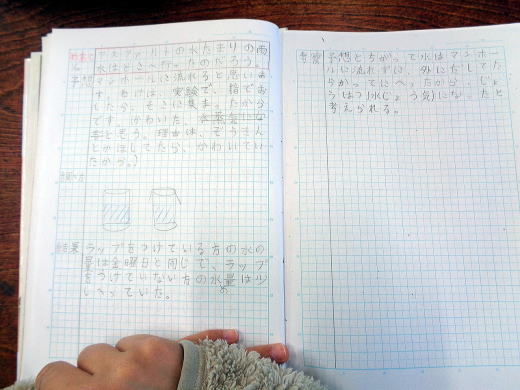 アスファルトの水たまりの雨
水はどこへ行ったのだろう。
予想 マンホールに流れると思いま
す。わけは、実験で、指でお
したら、そこに集またから
です。かわいた。水蒸気にな
ると思う。理由は、ぞうきん
とかほしてたら、かわいてい
たから。)
結果 ラップをつけている方の水の
量は金曜日と同じで、ラップ
をつけていない方の水量は少
しへっていた。
考察 予想とちがって水はマンホー
ルに流れずに、外にだしてた
らかってにへったから、じょ
うはつ(水じょう気)になったと
考えられる。